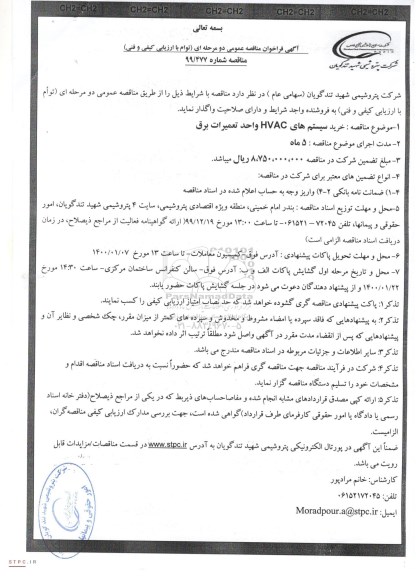 بسمه تعالی
آگهی فراخوان مناقصه عمومی دو مرحله ای (توام با ارزیابی کیفی و فنی)
مناقصه شماره ۹۹/۲۷۷
شرکت پتروشیمی شهید تندگویان
شرکت پتروشیمی شهید تندگویان (سهامی عام ) در نظر دارد مناقصه با شرایط ذیل را از طریق مناقصه عمومی دو مرحله ای (توأم
با ارزیابی کیفی و فنی) به فروشنده واجد شرایط و دارای صلاحیت واگذار نماید.
۱-موضوع مناقصه : خرید سیستم های HVAC واحد تعمیرات برق
۲-مدت اجرای موضوع مناقصه : ۵ ماه
۳-مبلغ تضمین شرکت در مناقصه ۸،۷۵۰،۰۰۰،۰۰۰ ریال میباشد.
۴-انواع تضمین های معتبر برای شرکت در مناقصه:
۱-۴) ضمانت نامه بانکی ۲-۴) واریز وجه به حساب اعلام شده در اسناد مناقصه
۵-محل و مهلت توزیع اسناد مناقصه : بندر امام خمینی، منطقه ویژه اقتصادی پتروشیمی، سایت ۴ پتروشیمی شهید تندگویان، امور
حقوقی و پیمانها، تلفن ۷۲۰۴۵ – ۰۶۱۵۲۱- تا ساعت ۱۳:۰۰ مورخ ۹۹/۱۲/۱۹( ارائه گواهینامه فعالیت از مراجع ذیصلاح، در زمان
دریافت اسناد مناقصه الزامی است)
۶- محل و مهلت تحویل پاکات پیشنهادی : آدرس فوق-کمیسیون معاملات- تا ساعت ۱۳ مورخ ۱۴۰۰/۰۱/۰۷
۷- محل و تاریخ مرحله اول گشایش پاکات الف و ب: آدرس فوق- سالن کنفرانس ساختمان مرکزی- ساعت ۱۴:۳۰ مورخ
۱۴۰۰/۰۱/۲۲ و از پیشنهاد دهندگان دعوت می شود در جلسه گشایش پاکات حضور یابند.
تذکر۱: پاکت پیشنهادی مناقصه گری گشوده خواهد شد که حد نصاب امتیاز ارزیابی کیفی را کسب نمایند.
تذکر۲: به پیشنهادهایی که فاقد سپرده یا امضاء مشروط و مخدوش و سپرده های کمتر از میزان مقرر، چک شخصی و نظایر آن و
پیشنهادهایی که پس از انقضاء مدت مقرر در آگهی واصل شود مطلقاً ترتیب اثر داده نخواهد شد.
تذکر۳: سایر اطلاعات و جزئیات مربوطه در اسناد مناقصه مندرج می باشد.
تذکر۴: شرکت در فرآیند مناقصه جهت مناقصه گری فراهم خواهد شد که حضوراً نسبت به دریافت اسناد مناقصه اقدام و
مشخصات خود را تسلیم دستگاه مناقصه گزار نماید.
تذکر۵: ارائه کپی مصدق قراردادهای مشابه انجام شده و مفاصاحساب‌های ذیربط که در یکی از مراجع ذیصلاح(دفتر خانه اسناد
رسمی یا دادگاه یا امور حقوقی کارفرمای طرف قرارداد)گواهی شده است، جهت بررسی مدارک ارزیابی کیفی مناقصه‌گران،
الزامیست.
ضمناً این آگهی در پورتال الکترونیکی پتروشیمی شهید تندگویان به آدرس www.stpc.ir در قسمت مناقصات/مزایدات قابل
رویت می باشد.
کارشناس: خانم مرادپور
تلفن: ۰۶۱۵۲۱۷۲۰۴۵
ایمیل: Moradpour.a@stpc.ir
STPC.IR